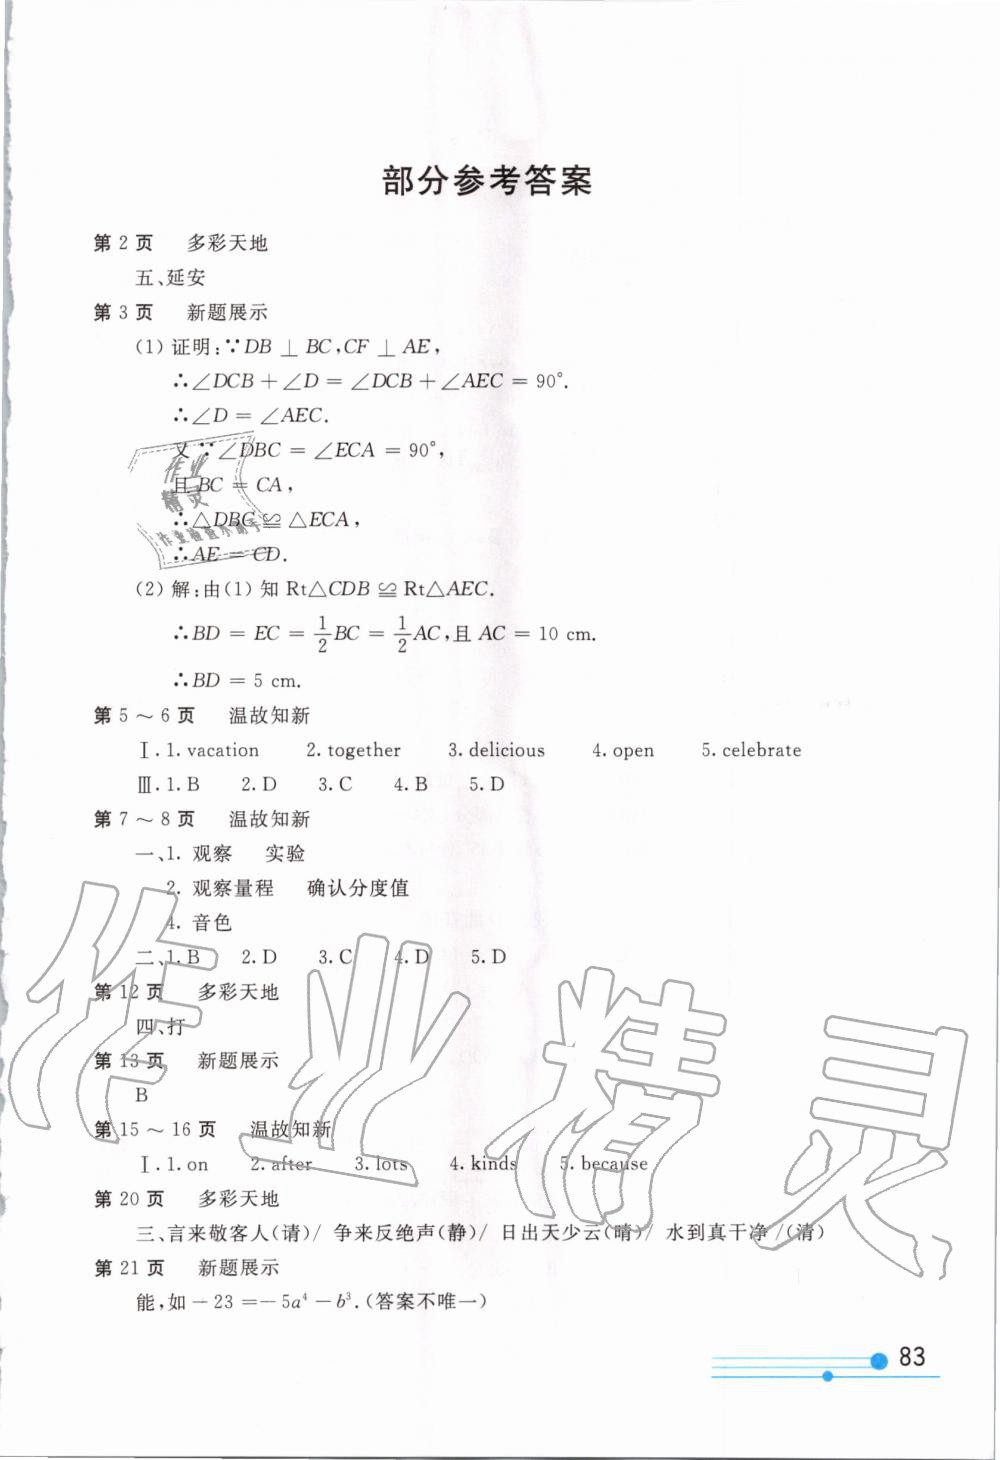 部分参考答案
第 2 页 多彩天地
五、延安
第 3 页 新题展示
(1) 证明:∵DB ⊥ BC,CF ⊥ AE,
∴∠DCB + ∠D = ∠DCB + ∠AEC = 90°.
∴∠D = ∠AEC.
又 ∵∠DBC = ∠ECA = 90°,
且 BC = CA,
∴△DBC ≌ △ECA,
∴AE = CD.
(2) 解:由(1) 知 Rt△CDB ≌ Rt△AEC.
∴BD = EC = 1/2 BC = 1/2 AC,且 AC = 10 cm.
∴BD = 5 cm.
第 5 ~ 6 页 温故知新
Ⅰ. 1. vacation 2. together 3. delicious 4. open 5. celebrate
Ⅲ. 1. B 2. D 3. C 4. B 5. D
第 7 ~ 8 页 温故知新
一、1. 观察 实验
2. 观察量程 确认分度值
4. 音色
二、1. B 2. D 3. C 4. D 5. D
第 12 页 多彩天地
四、打
第 13 页 新题展示
B
第 15 ~ 16 页 温故知新
Ⅰ. 1. on 2. after 3. lots 4. kinds 5. because
第 20 页 多彩天地
三、言来敬客人(请)/ 争来反绝声(静)/ 日出天少云(晴)/ 水到真干净 /(清)
第 21 页 新题展示
能,如 − 23 = − 5a⁴ − b³. (答案不唯一)
83
作业
精灵
作业检查小助手
作业精灵